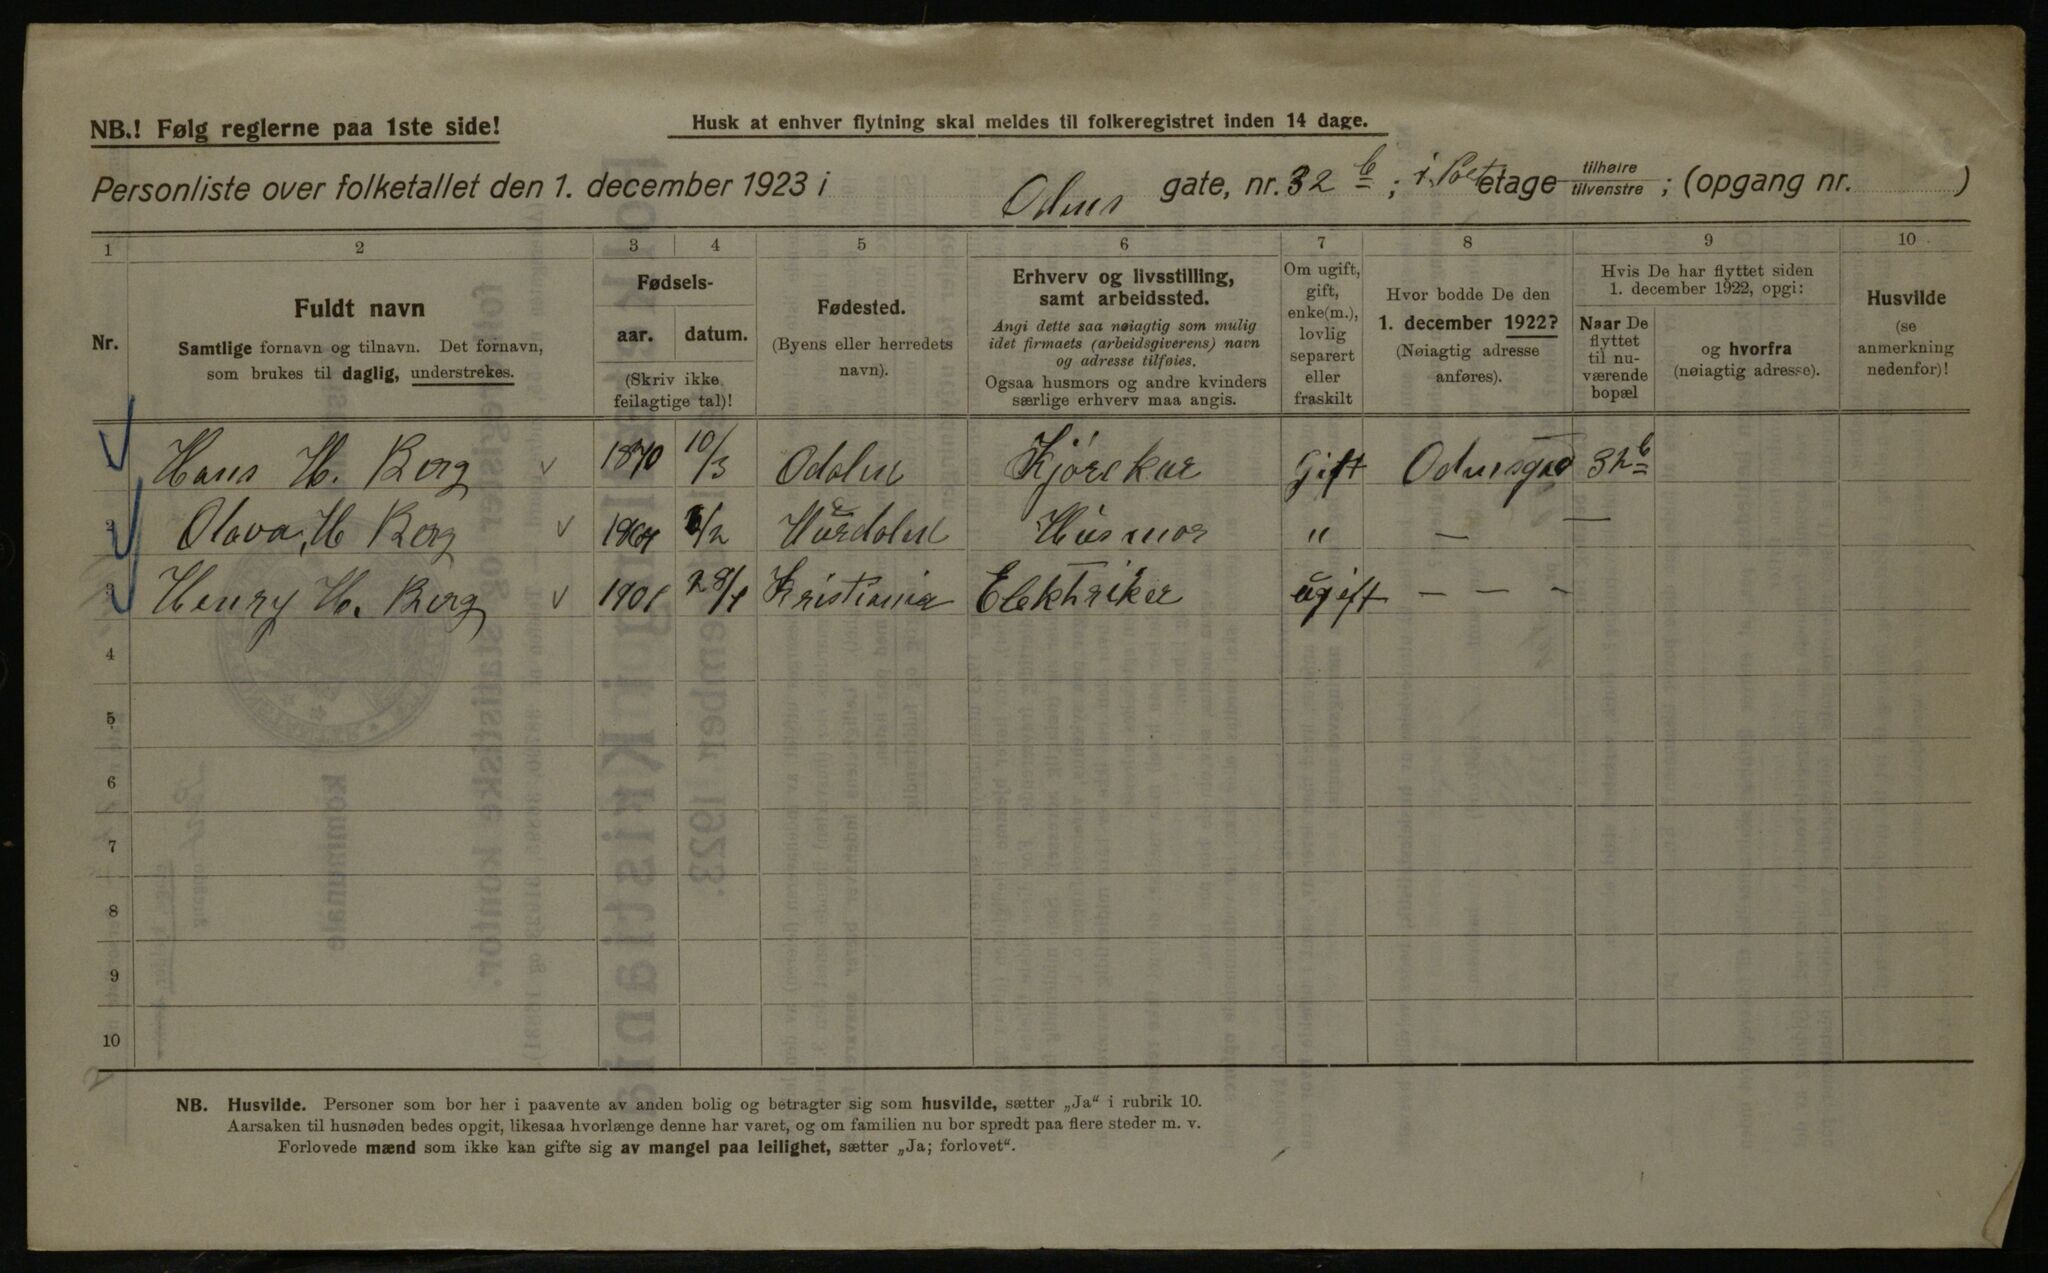 NB.! Følg reglerne paa 1ste side!
Husk at enhver flytning skal meldes til folkeregistret inden 14 dage.
Personliste over folketallet den 1. december 1923 i Odins gate, nr. 32 b; i. etage tilhøire/tilvenstre; (opgang nr. )
1 2 3 4 5 6 7 8 9 10
Nr.
Fuldt navn
Samtlige fornavn og tilnavn. Det fornavn,
som brukes til daglig, understrekes.
Fødsels-
aar. datum.
(Skriv ikke
feilagtige tal)!
Fødested.
(Byens eller herredets
navn).
Erhverv og livsstilling,
samt arbeidssted.
Angi dette saa nøiagtig som mulig
idet firmaets (arbeidsgiverens) navn
og adresse tilføies.
Ogsaa husmors og andre kvinders
særlige erhverv maa angis.
Om ugift,
gift,
enke(m.),
lovlig
separert
eller
fraskilt
Hvor bodde De den
1. december 1922?
(Nøiagtig adresse
anføres).
Hvis De har flyttet siden
1. december 1922, opgi:
Naar De
flyttet
til nu-
værende
bopæl
og hvorfra
(nøiagtig adresse).
Husvilde
(se
anmerkning
nedenfor)!
Hans H. Berg 1870 10/3 Odalen Kjørekar Gift Odinsgad 32 b
2 Olava, H Berg /2 Hurdalen Husmor " — —
3 Henry H. Berg 1901 Kristiania Elektriker ugift — — —
4
5
6
7
8
9
10
NB. Husvilde. Personer som bor her i paavente av anden bolig og betragter sig som husvilde, sætter „Ja“ i rubrik 10.
Aarsaken til husnøden bedes opgit, likesaa hvorlænge denne har varet, og om familien nu bor spredt paa flere steder m. v.
Forlovede mænd som ikke kan gifte sig av mangel paa leilighet, sætter „Ja; forlovet“.